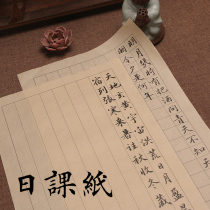 明月幾時有把酒問青天不知天
闕今夕是何年
天地玄黃宇宙洪荒日月盈
宿列張寒來暑往秋收冬藏
日課紙